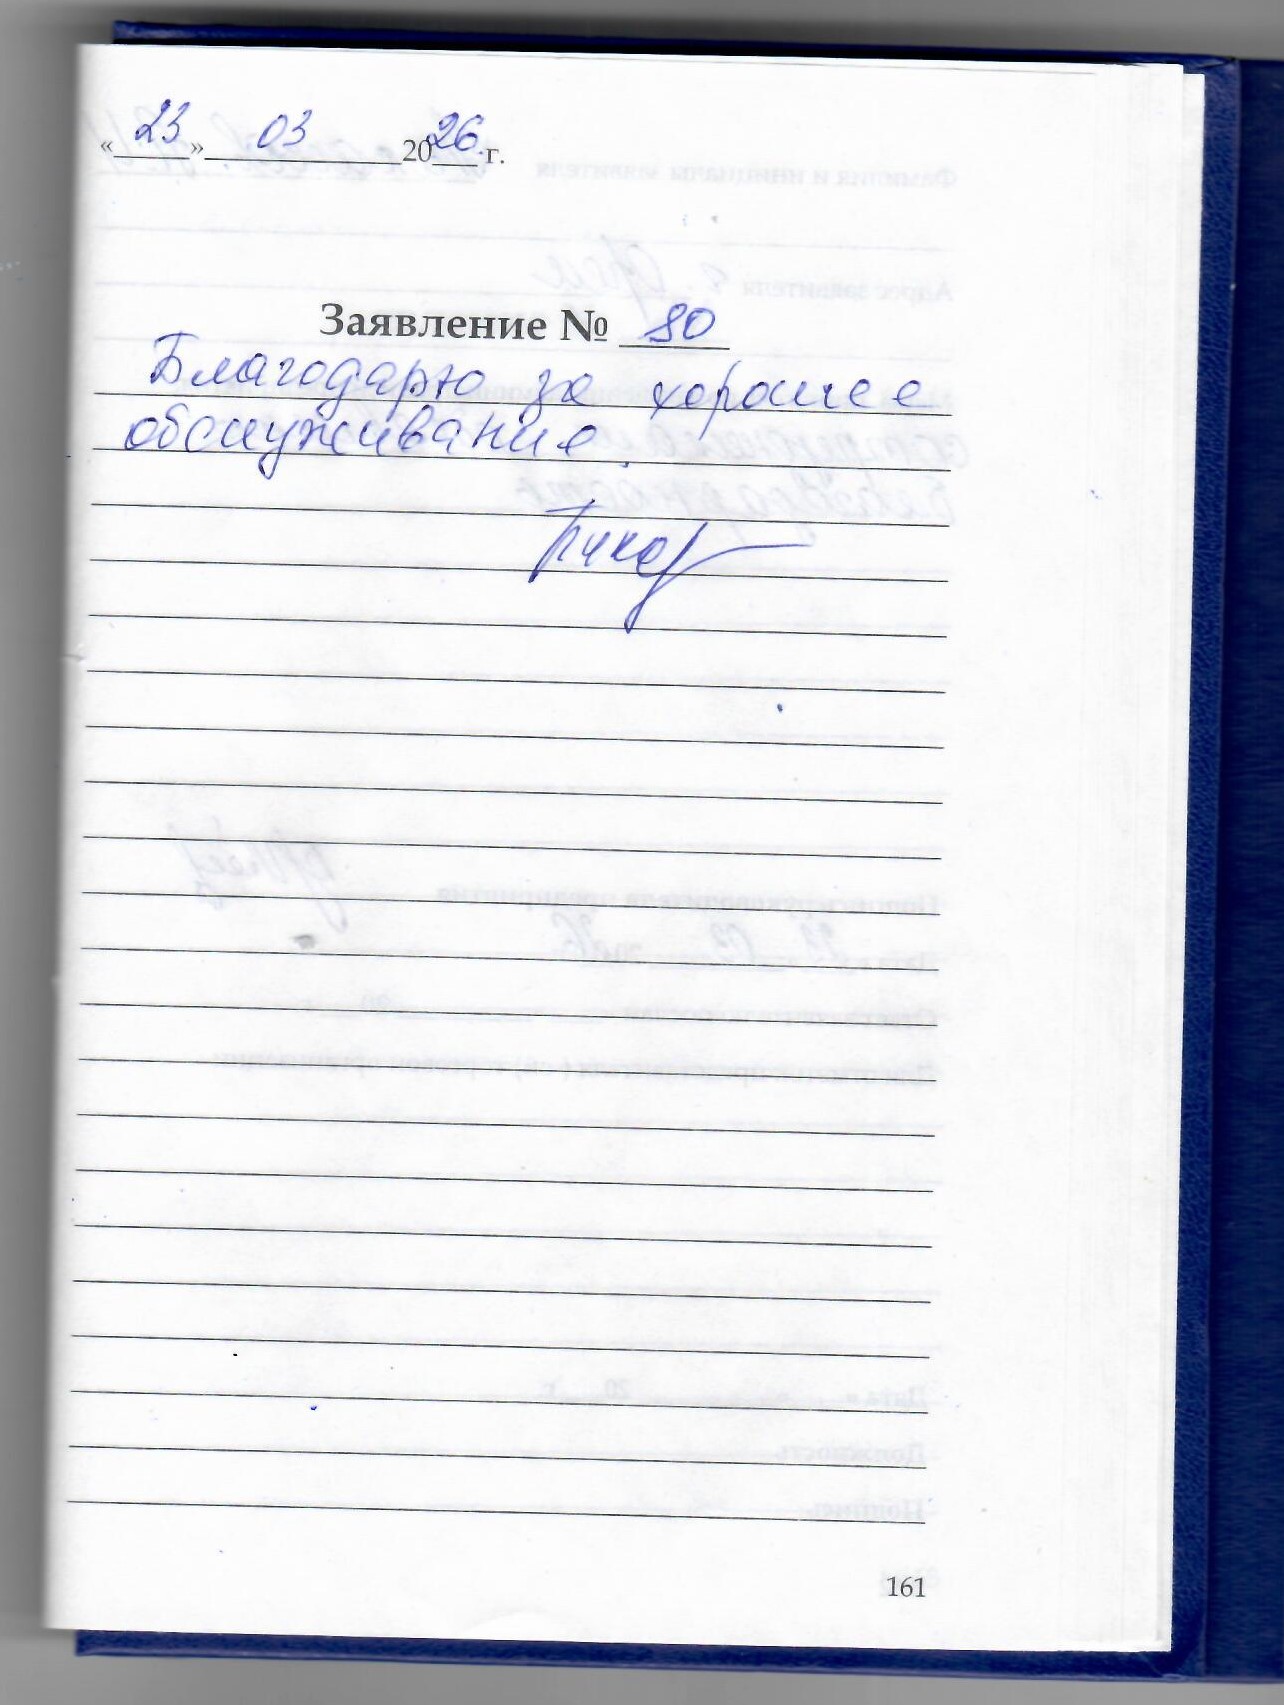 «23» 03 2026 г.
Заявление № 80
Благодарю за хорошее
обслуживание.
161